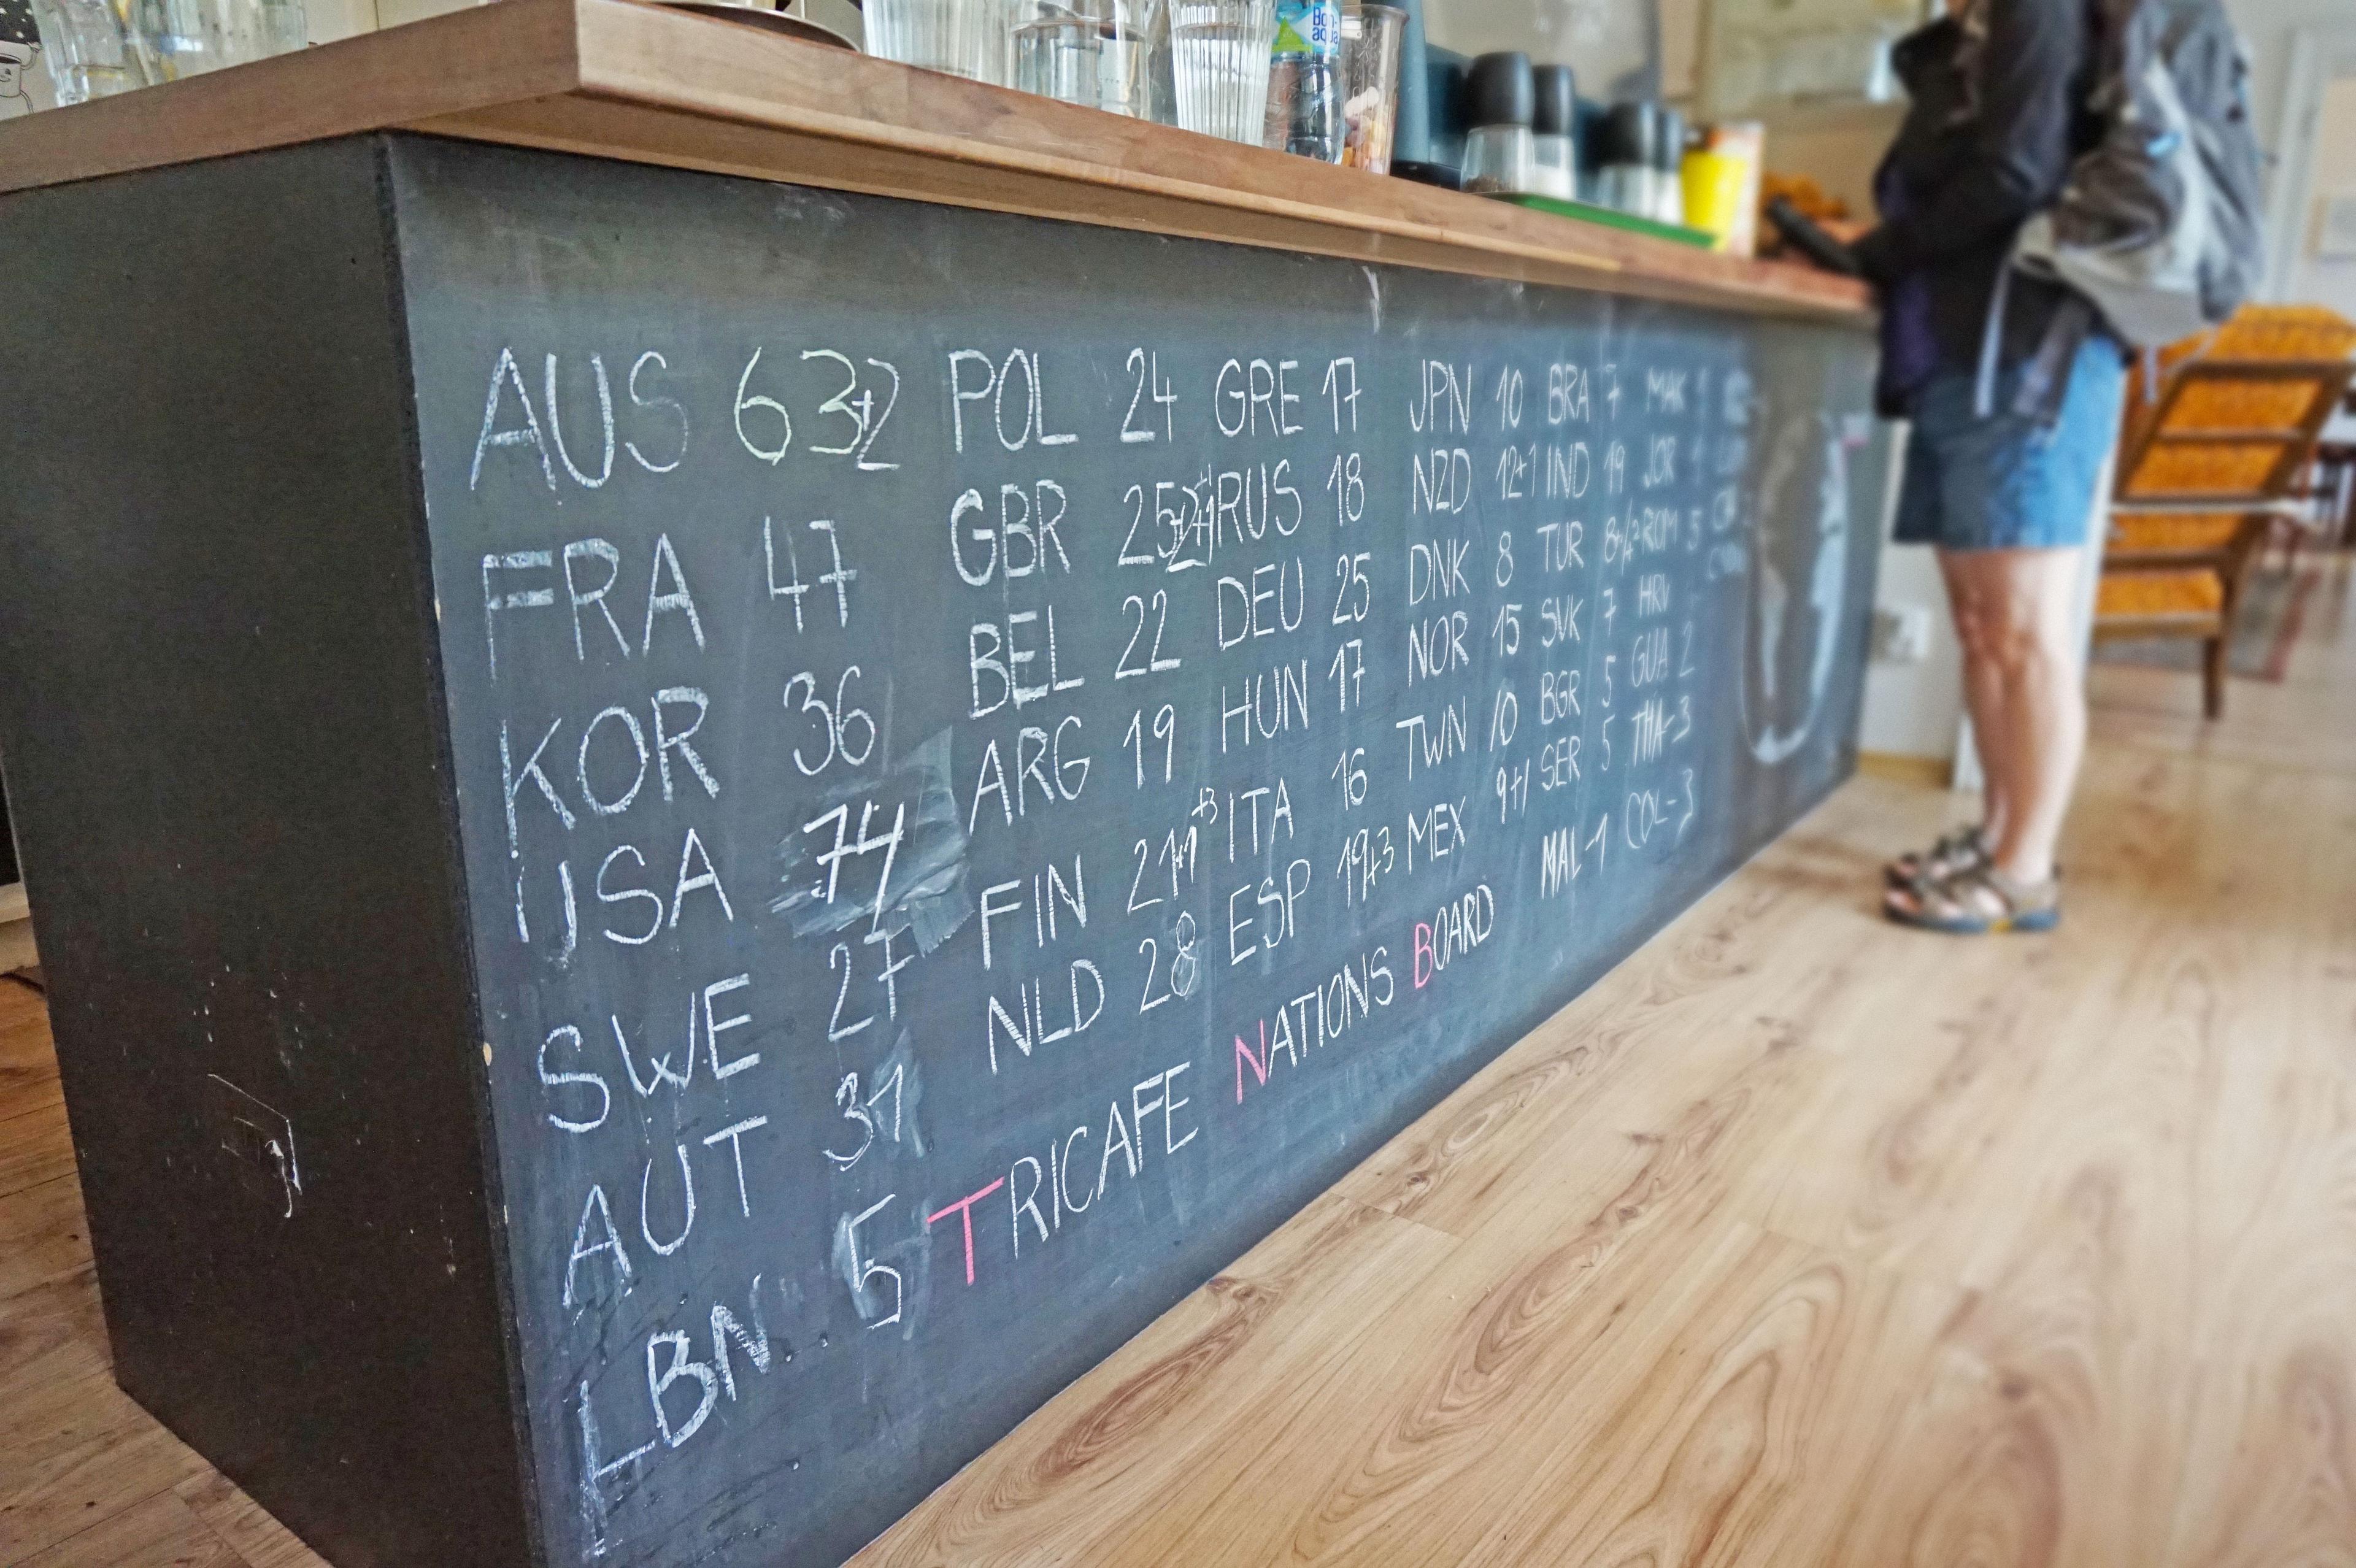 Bon aqua
AUS 63+2 POL 24 GRE 17 JPN 10 BRA 7 MAK 1
FRA 47 GBR 25+2+1+1 RUS 18 NZD 12+1 IND 19 JOR 1
KOR 36 BEL 22 DEU 25 DNK 8 TUR ROM 5
USA 74 ARG 19 HUN 17 NOR 15 SVK 7 HRV
SWE 27 FIN 21+1+3 ITA 16 TWN 10 BGR 5 GUA 2
AUT 31 NLD 28 ESP 19+3 MEX 9+1 SER 5 THA-3
LBN 5 MAL-1 COL-3
TRICAFE NATIONS BOARD